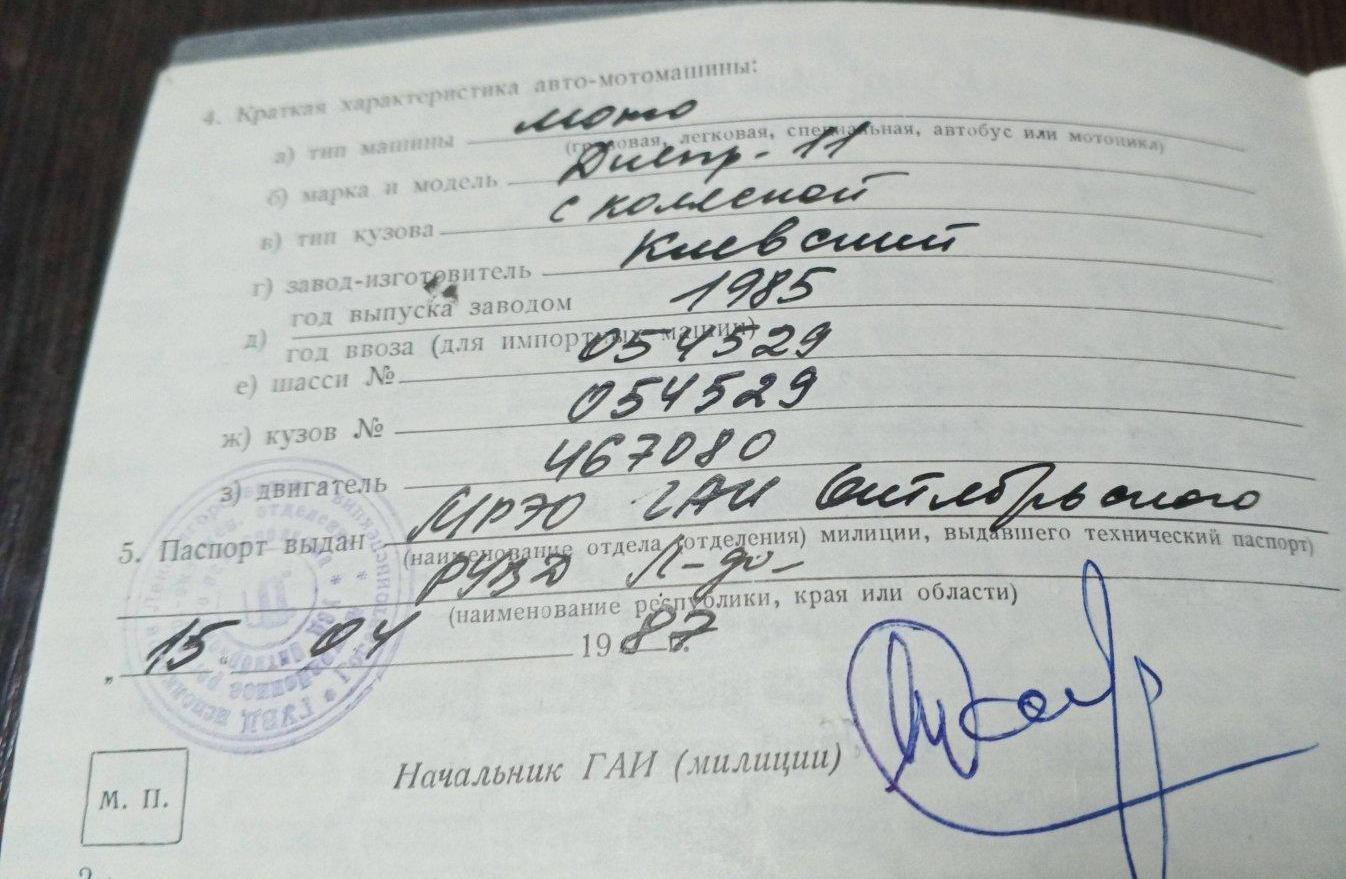 4. Краткая характеристика авто-мотомашины:
а) тип машины мото
(грузовая, легковая, специальная, автобус или мотоцикл)
б) марка и модель Днепр-11
в) тип кузова с коляской
г) завод-изготовитель Киевский
д) год выпуска заводом 1985
год ввоза (для импортных машин)
е) шасси № 054529
ж) кузов № 054529
з) двигатель 467080
5. Паспорт выдан МРЭО ГАИ Октябрьского
(наименование отдела (отделения) милиции, выдавшего технический паспорт)
РУВД Л-да
(наименование республики, края или области)
„15" 04 1987 г.
Начальник ГАИ (милиции)
М. П.